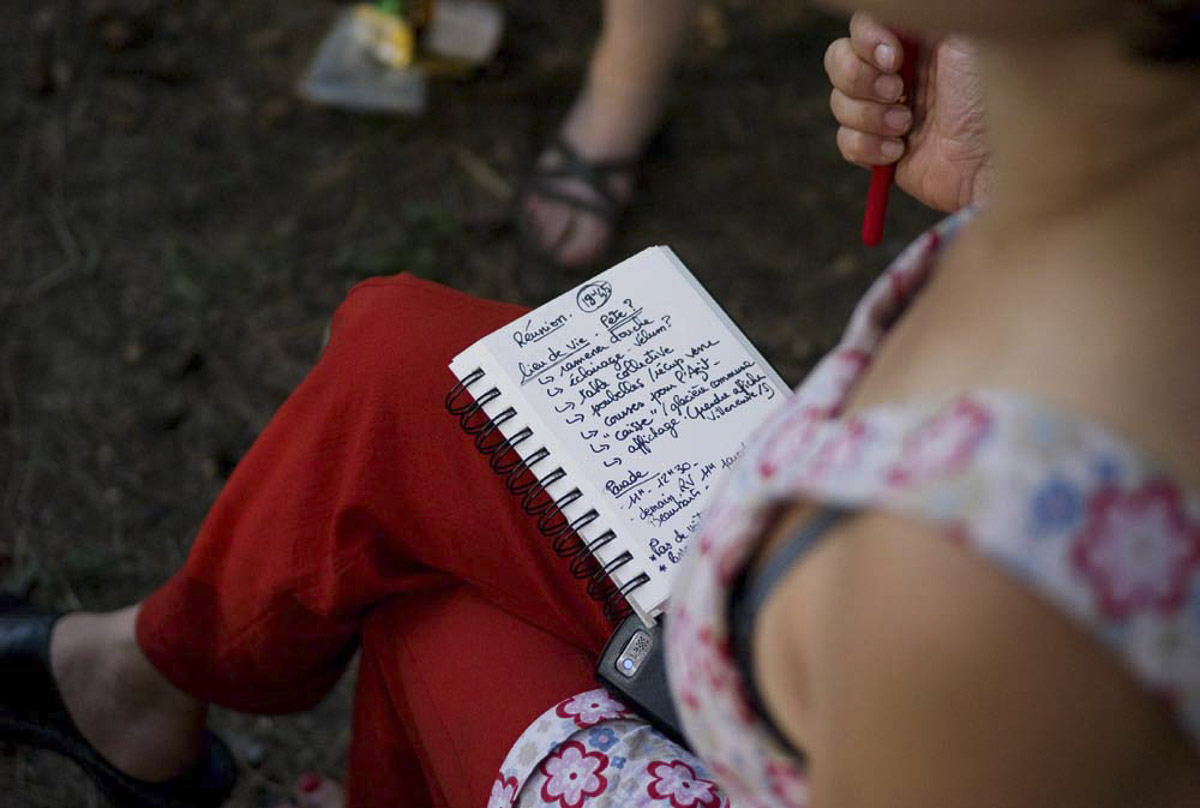 Réunion. 18h45
lieu de vie. Pète?
↳ ramener douche
↳ éclairage - vélum?
↳ table collective
↳ poubelles / récup verre
↳ courses pour l'Agit -
↳ "caisse" / glacière commune
↳ affichage. (prendre affiche
Villeneuve/S)
Parade
11h - 12h30 -
- demain RV 11h
Beaubourg -
* Pas de
*